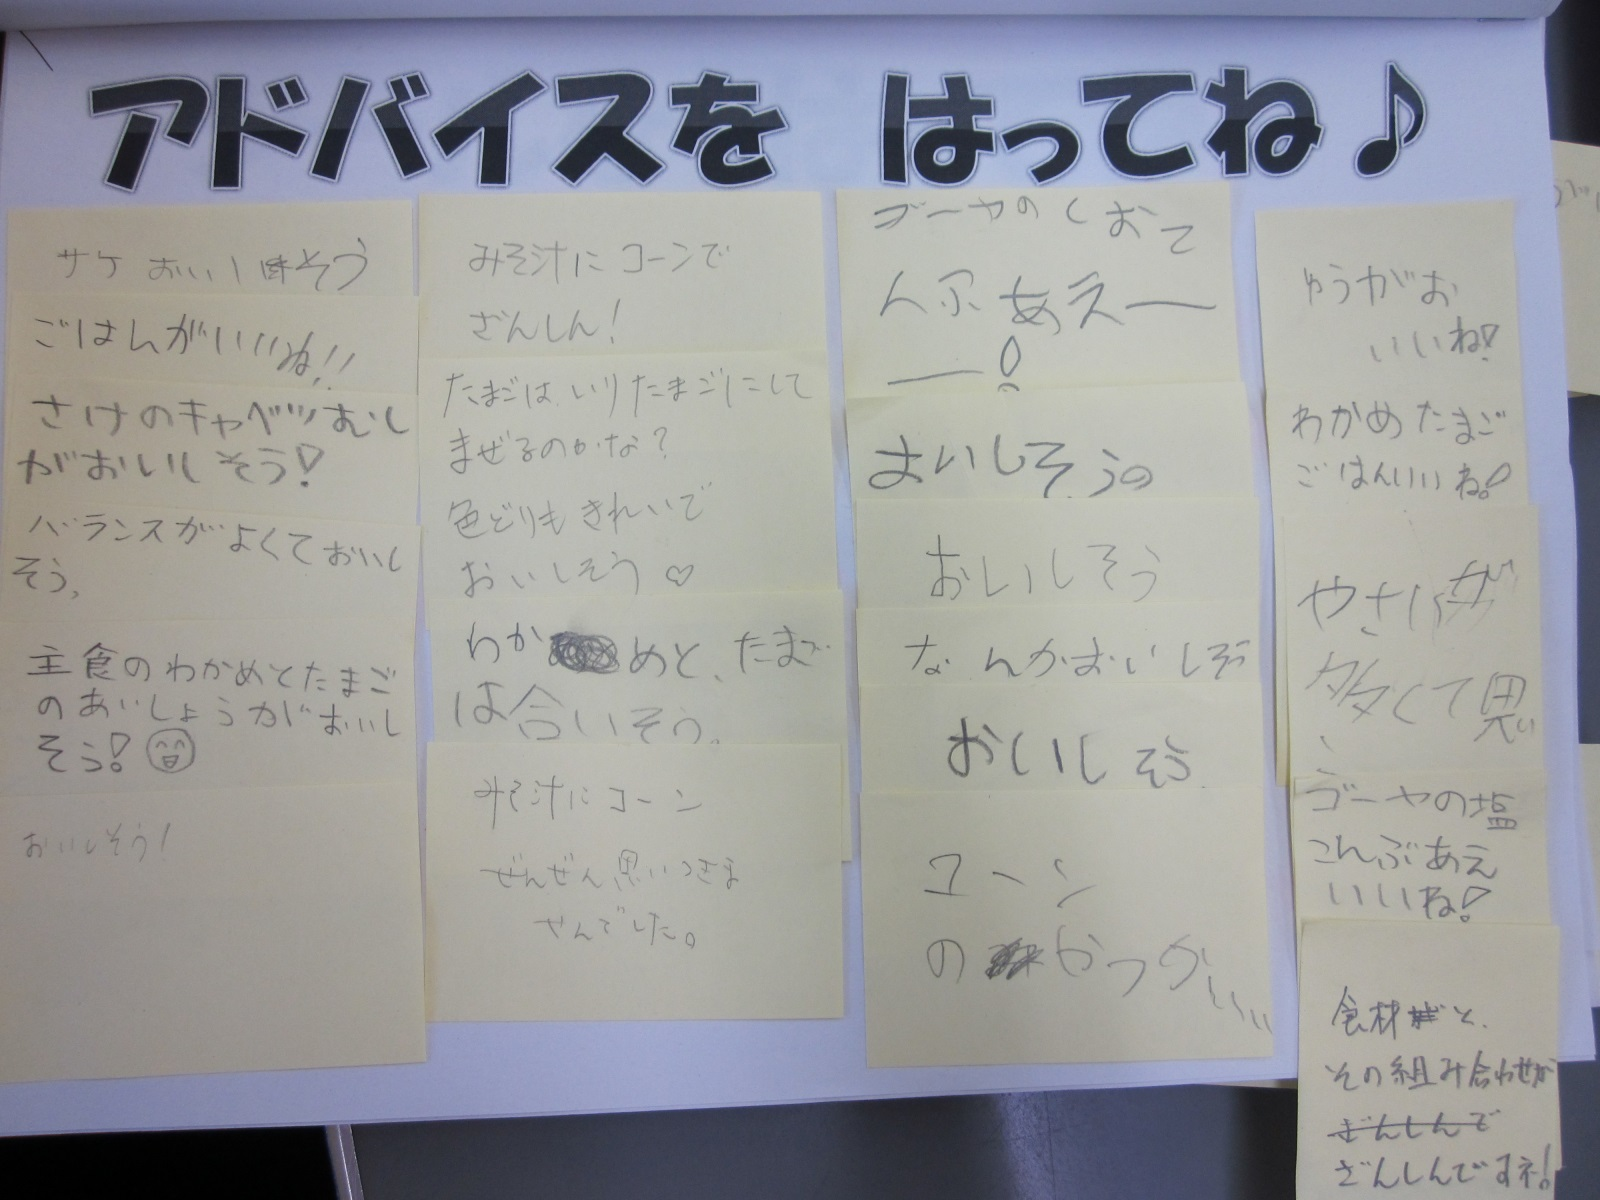 アドバイスを はってね♪
サケ おいし味そう
ごはんがいいね!!
さけのキャベツむし
がおいしそう!
バランスがよくておいし
そう。
主食のわかめとたまご
のあいしょうがおいし
そう!
おいしそう!
みそ汁にコーンで
ざんしん!
たまごは、いりたまごにして
まぜるのかな?
色どりもきれいで
おいしそう♡
わか めと、たまご
は合いそう。
みそ汁にコーン
ぜんぜん思いつきま
せんでした。
ゴーヤのしおこ
んぶあえー
ー!
おいしそうの
おいしそう
なんかおいしそう
おいしそう
コーン
の
ゆうがお
いいね!
わかめたまご
ごはんいいね!
やさいが
多くて思い
ゴーヤの塩
こんぶあえ
いいね!
食材 と、
その組み合わせが
ざんしんで
ざんしんですネ!